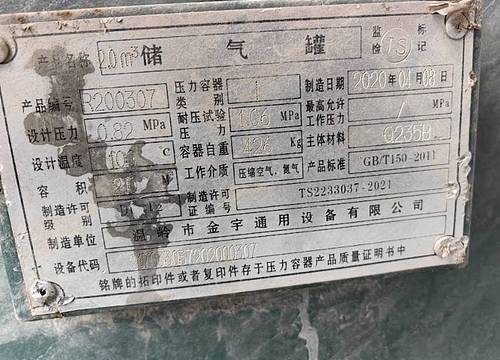 产品名称 2.0m³储气罐 监检 TS 标记
产品编号 R200307 压力容器类别 I 制造日期 2020年04月08日
设计压力 0.82 MPa 耐压试验压力 1.06 MPa 最高允许工作压力 / MPa
设计温度 ℃ 容器自重 426 Kg 主体材料 Q235B
容积 M³ 工作介质 压缩空气、氮气 产品标准 GB/T150-2011
制造许可级别 制造许可证编号 TS2233037-2021
制造单位 温岭市金宇通用设备有限公司
设备代码
铭牌的拓印件或者复印件存于压力容器产品质量证明书中